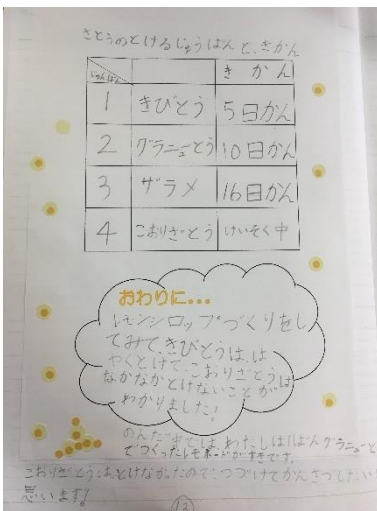 さとうのとけるじゅうばんと、きかん
じゅんばん
きかん
1 きびとう 5日かん
2 グラニューとう 10日かん
3 ザラメ 16日かん
4 こおりざとう けいそく中
おわりに...
レモンシロップづくりをし
てみて、きびとうは、は
やくとけて、こおりざとうは
なかなかとけないことが
わかりました!
のんだ中では、わたしは1ばんグラニューと
でつくったレモネードがすきです。
こおりざとうは、とけなかったので、つづけてかんさつしたいと
思います!